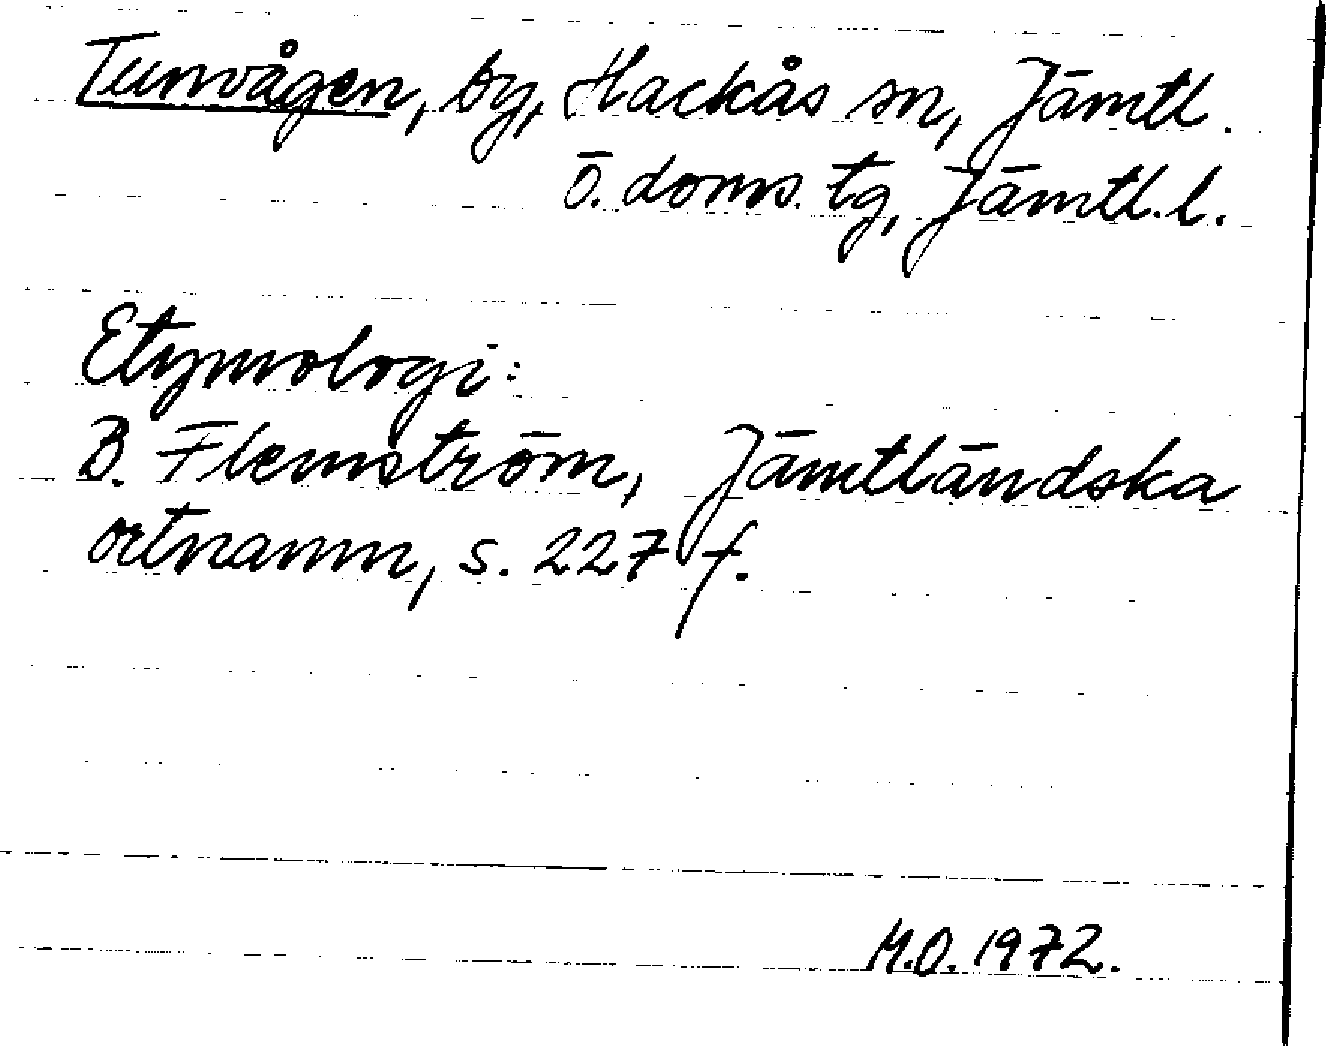 Tunvågen, by, Hackås sn, Jämtl.
ö. doms. tg, Jämtl. l.
Etymologi:
B. Flemström, Jämtländska
ortnamn, s. 227 f.
M.O. 1972.